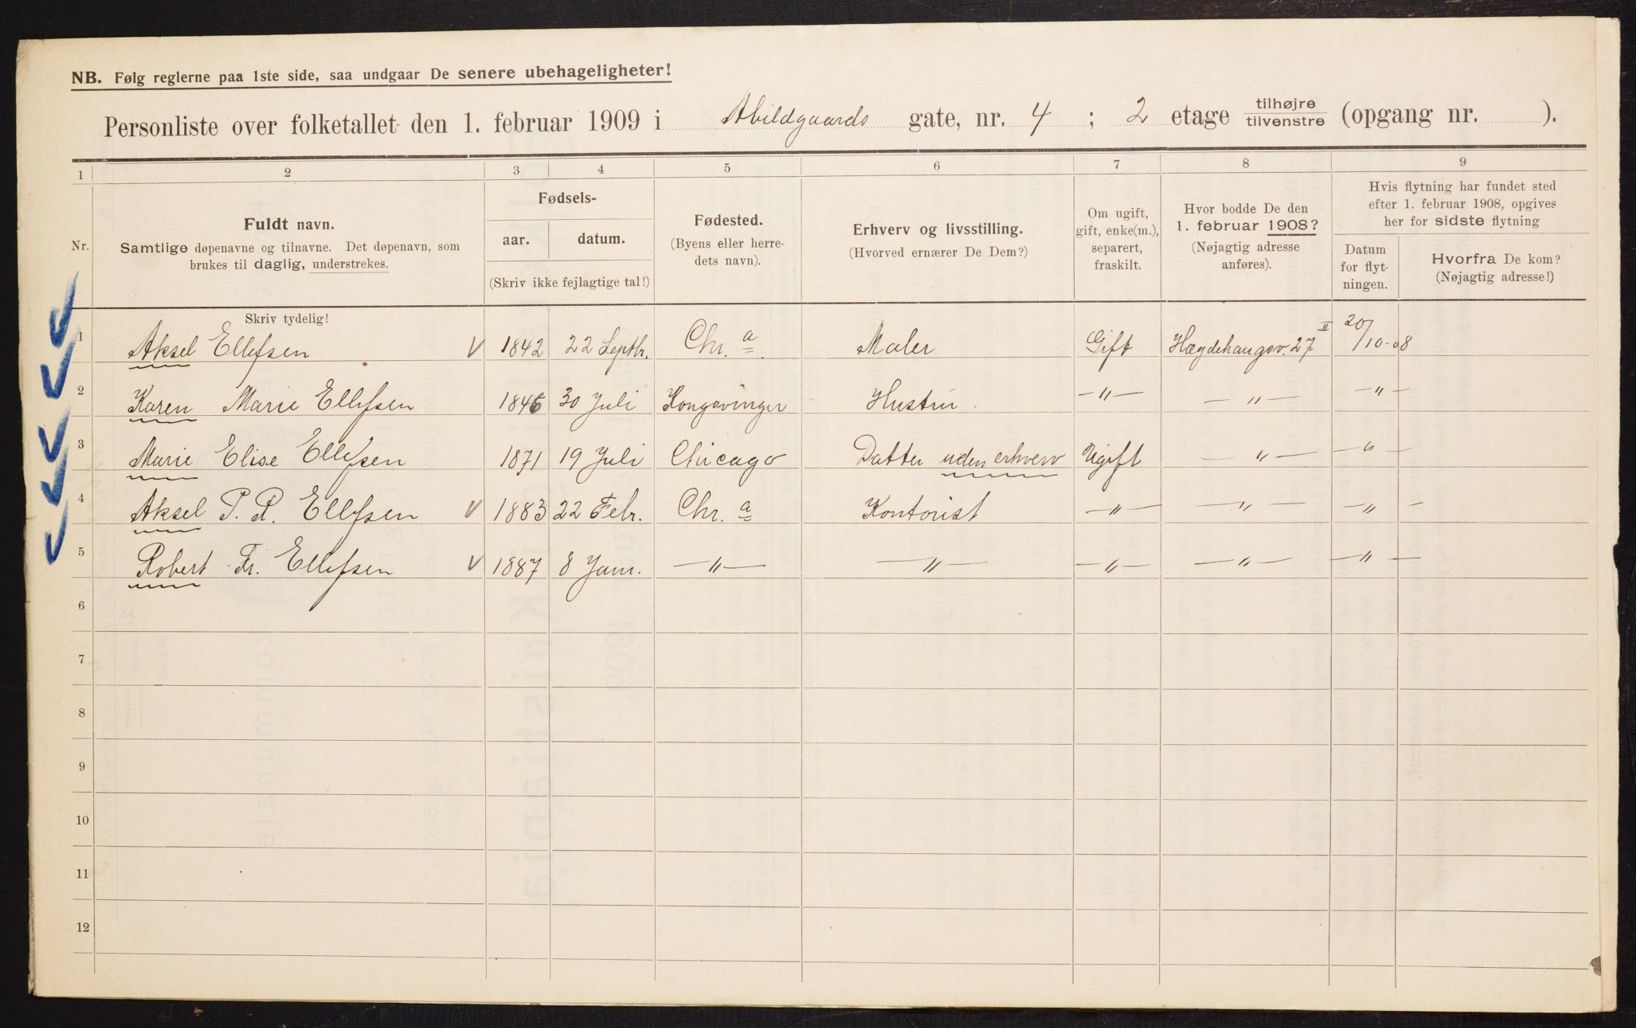 NB. Følg reglerne paa 1ste side, saa undgaar De senere ubehageligheter!
Personliste over folketallet den 1. februar 1909 i Abildgaards gate, nr. 4 ; 2 etage tilhøjre tilvenstre (opgang nr. ).
1 2 3 4 5 6 7 8 9
Nr.
Fuldt navn.
Samtlige døpenavne og tilnavne. Det døpenavn, som
brukes til daglig, understrekes.
Fødsels-
aar. datum.
(Skriv ikke fejlagtige tal!)
Fødested.
(Byens eller herre-
dets navn).
Erhverv og livsstilling.
(Hvorved ernærer De Dem?)
Om ugift,
gift, enke(m.),
separert,
fraskilt.
Hvor bodde De den
1. februar 1908?
(Nøjagtig adresse
anføres).
Hvis flytning har fundet sted
efter 1. februar 1908, opgives
her for sidste flytning
Datum
for flyt-
ningen.
Hvorfra De kom?
(Nøjagtig adresse!)
Skriv tydelig!
1 Aksel Ellefsen V 1842 22 Septbr. Chr. a Maler Gift Hægdehaugsv. 27 II 20/10-08
2 Karen Marie Ellefsen 1845 30 Juli Kongsvinger Hustru -"- -"- -"-
3 Marie Elise Ellefsen 1871 19 Juli Chicago Datter uden erhverv Ugift -"- -"-
4 Aksel P. R. Ellefsen V 1883 22 Febr. Chr. a Kontorist -"- -"- -"-
5 Robert Fr. Ellefsen V 1887 8 Jan. -"- -"- -"- -"- -"-
6
7
8
9
10
11
12